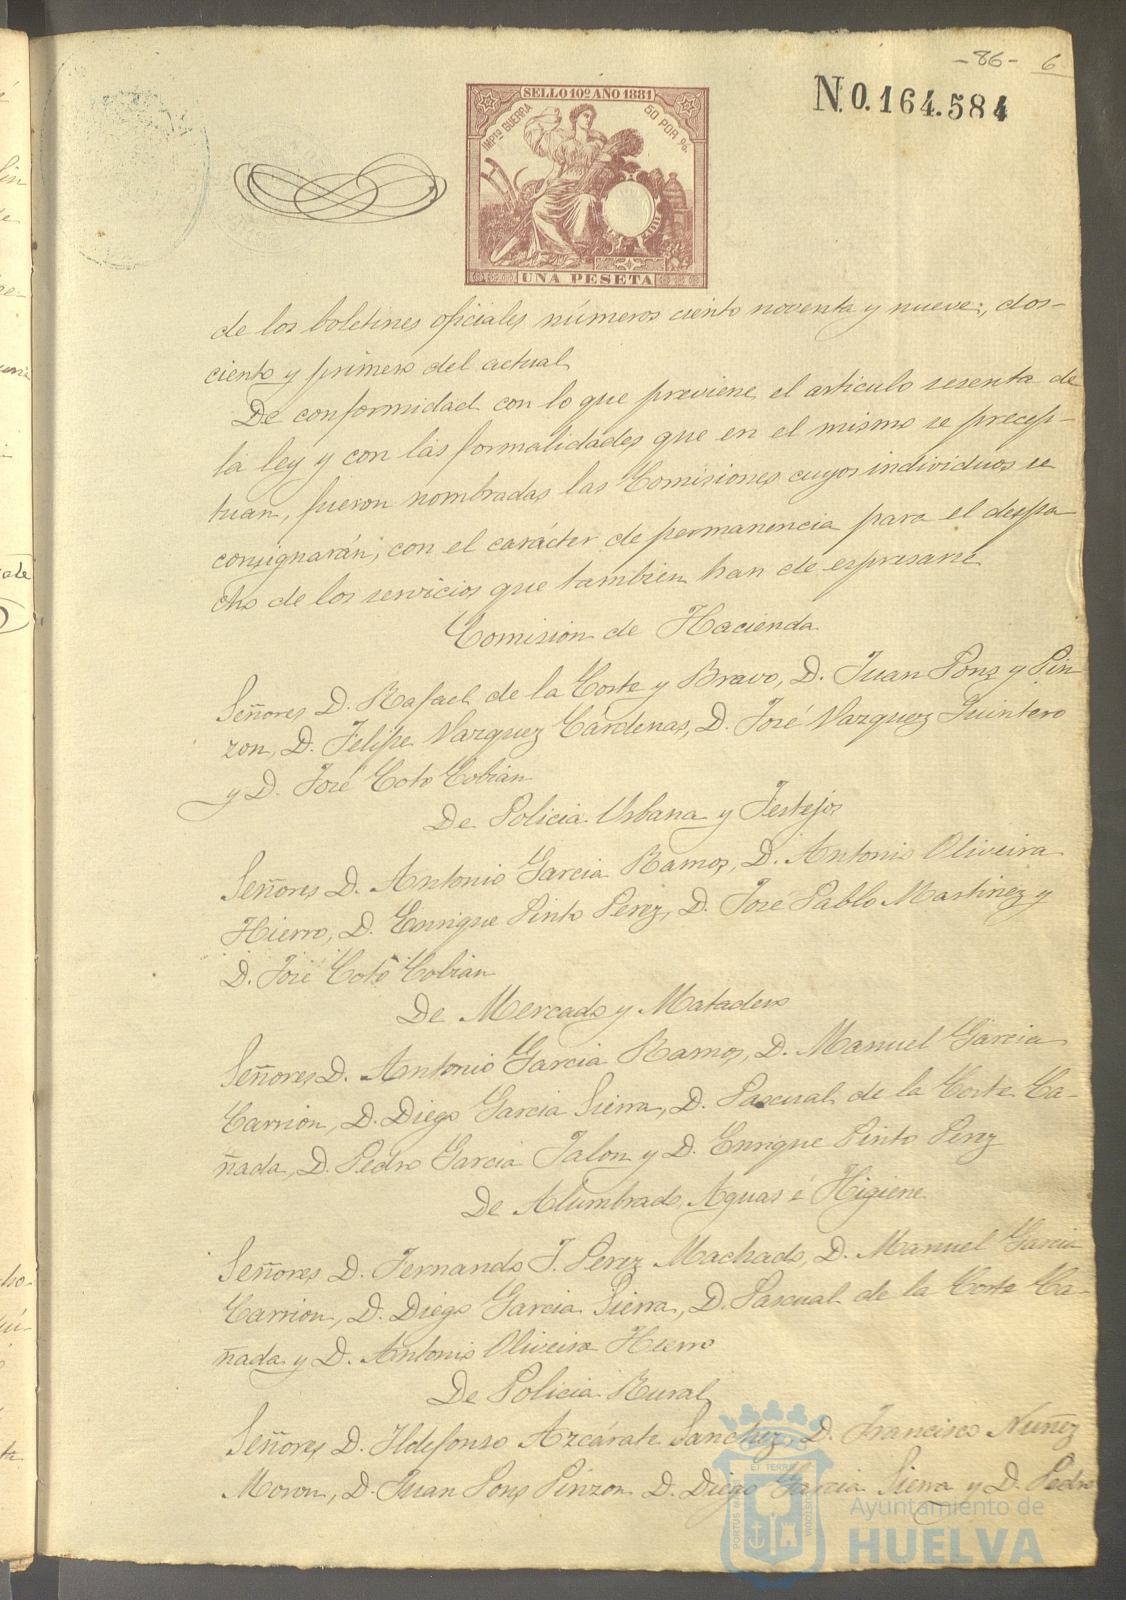 -86- 6
N.0.164.584
SELLO 10º AÑO 1881
IMPTO GUERRA
50 POR %
UNA PESETA
de los boletines oficiales números ciento noventa y nueve, dos-
ciento y primero del actual
De conformidad con lo que previene el articulo sesenta de
la ley y con las formalidades que en el mismo se precep-
tuan, fueron nombradas las Comisiones cuyos individuos se
consignarán, con el carácter de permanencia para el despa
cho de los servicios que tambien han de espresarse
Comision de Hacienda
Señores D. Rafael de la Corte y Bravo, D. Juan Pons y Pin
zon, D. Felipe Vazquez Cárdenas, D. José Vazquez Quintero
y D. José Coto Cobian
De Policia Urbana y Festejos
Señores D. Antonio Garcia Ramos, D. Antonio Oliveira
Hierro, D. Enrique Pinto Perez, D. José Pablo Martinez y
D. José Coto Cobian
De Mercado y Matadero
Señores D. Antonio Garcia Ramos, D. Manuel Garcia
Carrion, D. Diego Garcia Sierra, D. Pascual de la Corte Ca-
ñada, D. Pedro Garcia Jalon y D. Enrique Pinto Perez
De Alumbrado, Aguas é Higiene
Señores D. Fernando J. Perez Machado, D. Manuel Garcia
Carrion, D. Diego Garcia Sierra, D. Pascual de la Corte Ca-
ñada y D. Antonio Oliveira Hierro
De Policia Rural
Señores D. Ildefonso Azcárate Sanchez, D. Francisco Nuñez
Moron, D. Juan Pons Pinzon D. Diego Garcia Sierra y D. Pedro
Ayuntamiento de
HUELVA